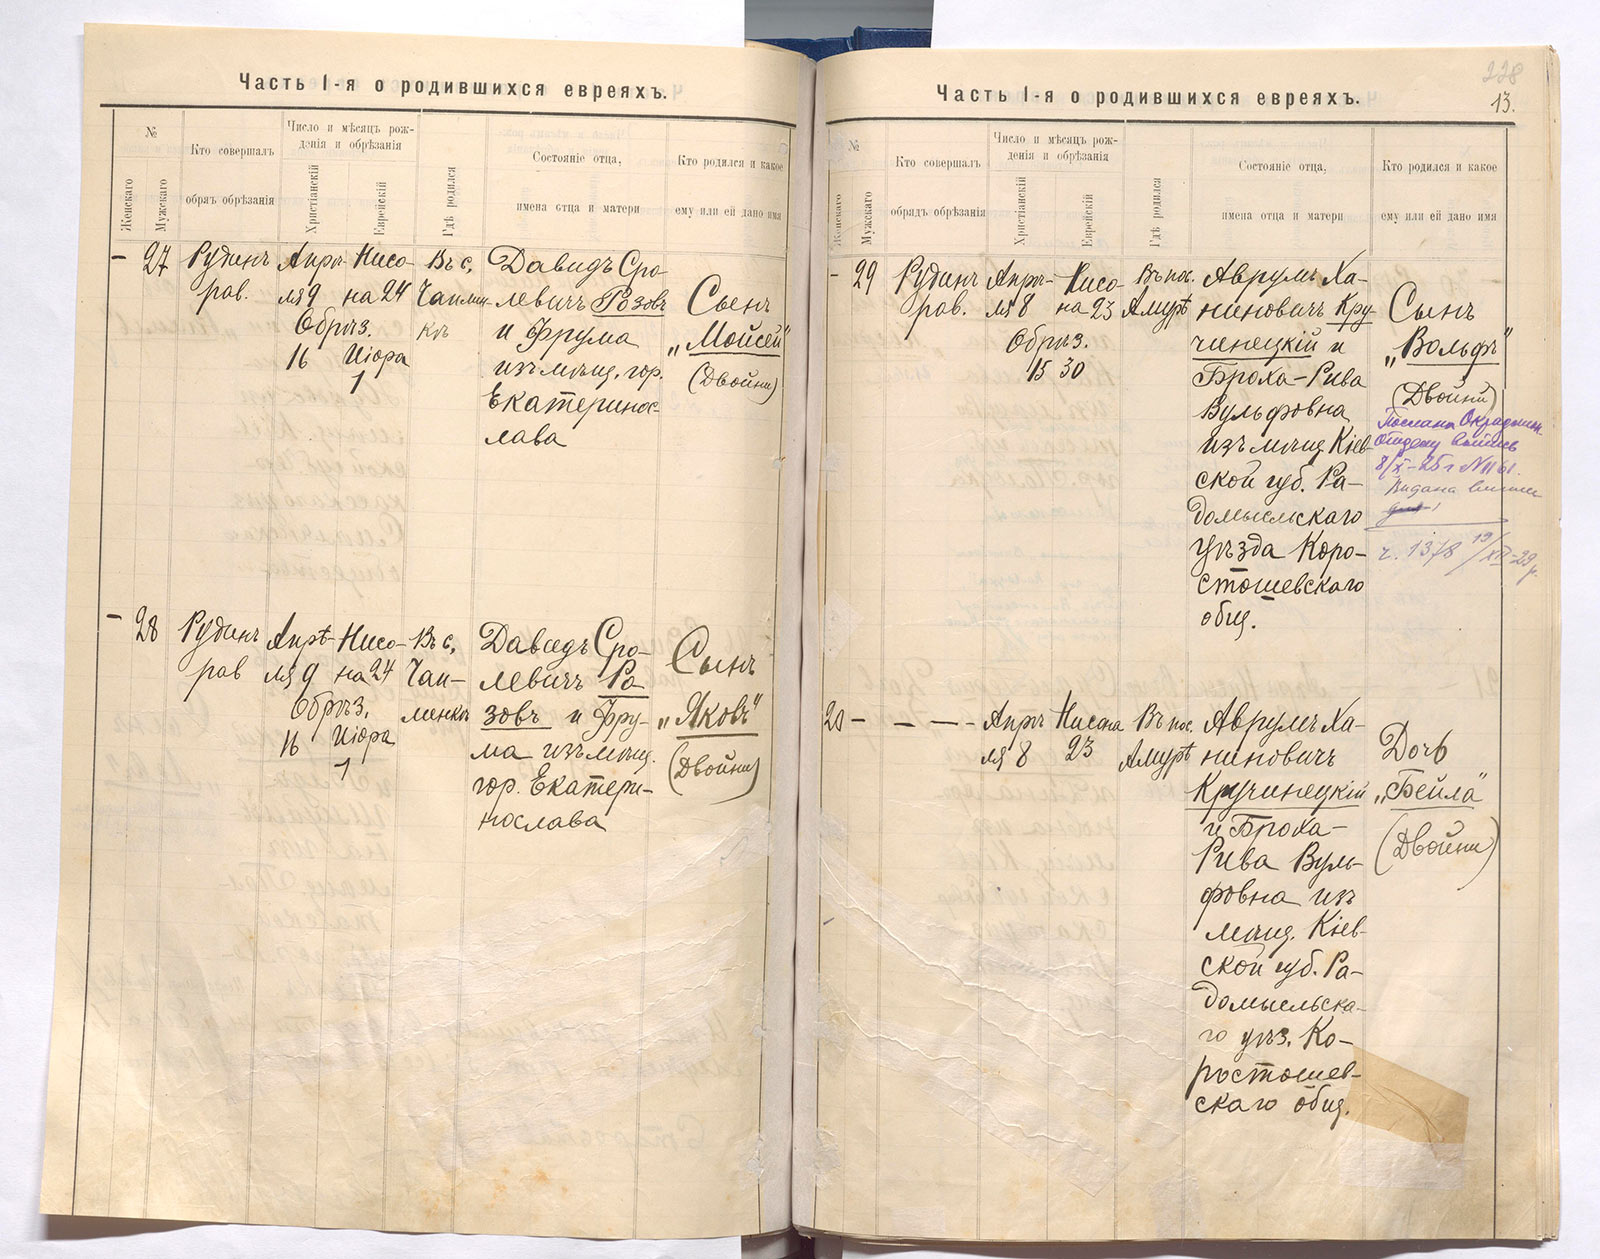 Часть I-я о родившихся евреяхъ.
№
Женскаго
Мужскаго
Кто совершалъ
обрядъ обрѣзанія
Число и мѣсяцъ рож-
денія и обрѣзанія
Христіанскій
Еврейскій
Гдѣ родился
Состояніе отца,
имена отца и матери
Кто родился и какое
ему или ей дано имя
– 27
Рудинъ
рав.
Апрѣ-
ля 9
Обрѣз.
16
Нисо-
на 24
Иіора
1
Въ с.
Давидъ Сро-
левичъ Розовъ
и Фрума
изъ мѣщ. гор.
Екатеринос-
лава
Сынъ
„Мойсей"
(Двойни)
– 28
Рудинъ
рав
Апрѣ-
ля 9
Обрѣз.
16
Нисо-
на 24
Иіора
1
Въ с.
Чап-
Давидъ Сро-
левичъ Ра
зовъ и Фру-
ма изъ мѣщ.
гор. Екатери-
нослава
Сынъ
„Яковъ"
(Двойни)
228
13.
Часть I-я о родившихся евреяхъ.
№
Женскаго
Мужскаго
Кто совершалъ
обрядъ обрѣзанія
Число и мѣсяцъ рож-
денія и обрѣзанія
Христіанскій
Еврейскій
Гдѣ родился
Состояніе отца,
имена отца и матери
Кто родился и какое
ему или ей дано имя
– 29
Рудинъ
рав.
Апрѣ-
ля 8
Обрѣз.
15
Нисо-
на 23
30
Въ пос.
Амурѣ
Аврумъ Ха-
ниновичъ Кру-
чинецкій и
Броха-Рива
Вульфовна
изъ мѣщ. Кіев-
ской губ. Ра-
домысльскаго
уѣзда Коро-
стошевскаго
общ.
Сынъ
„Вольфъ"
(Двойни)
8/X-25 г №1161.
Видана
ч. 1378 19/XII-29 р.
20 –
– – –
Апрѣ
ля 8
Нисана
23
Въ пос.
Амурѣ
Аврумъ Ха-
ниновичъ
Кручинецкій
и Броха-
Рива Вуль-
фовна изъ
мѣщ. Кіев-
ской губ. Ра-
домысльска-
го уѣз. Ко-
ростошев-
скаго общ.
Дочь
„Бейла"
(Двойни)